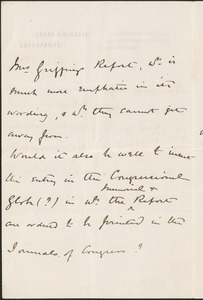 Mrs Griffing's Report, wh. is
much more emphatic in its
wording, & wh. they cannot get
away from.
Would it also be well to insert
the entry in the Congressional
Globe (?) in wh. the Memorial & Report
are ordered to be printed in the
Journals of Congress?